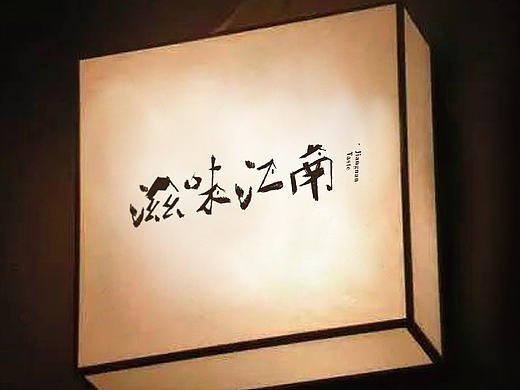 滋味江南
Jiangnan
Taste